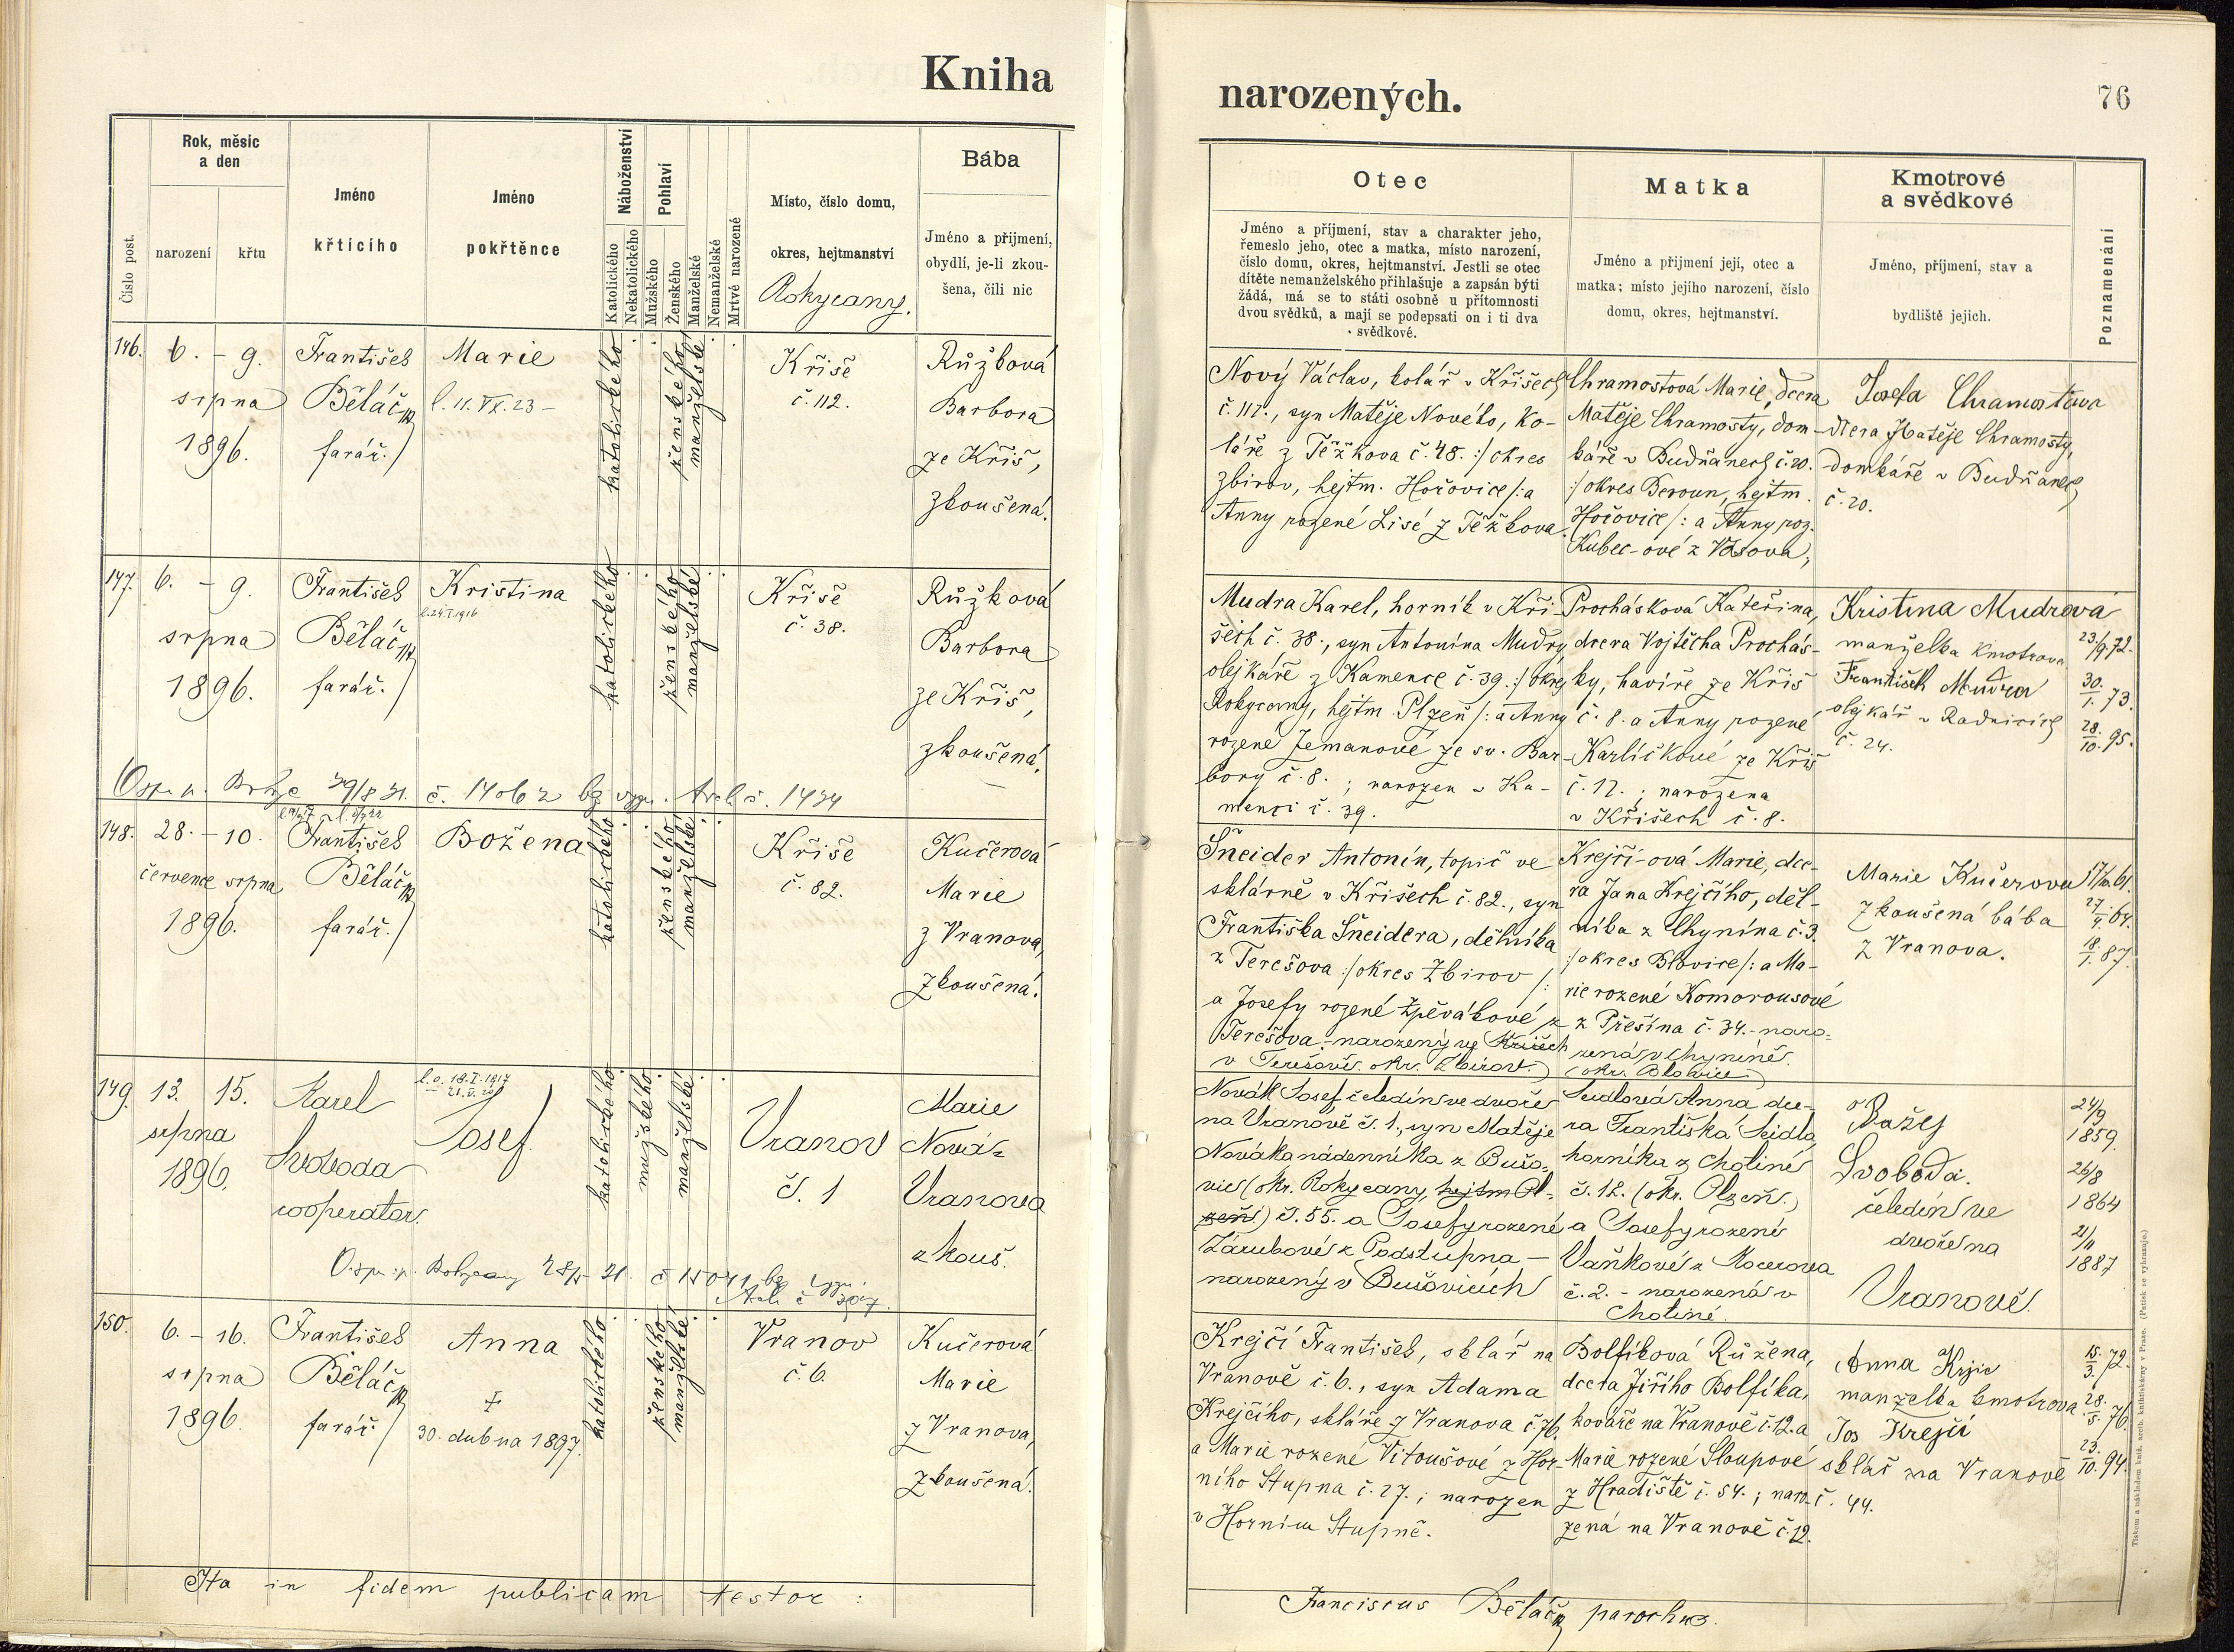 Kniha
narozených.
76
Číslo post.
Rok, měsíc
a den
narození
křtu
Jméno
křtícího
Jméno
pokřtěnce
Náboženství
Katolického
Nekatolického
Pohlaví
Mužského
Ženského
Manželské
Nemanželské
Mrtvé narozené
Místo, číslo domu,
okres, hejtmanství
Rokycany.
Bába
Jméno a přijmení,
obydlí, je-li zkou-
šena, čili nic
Otec
Jméno a příjmení, stav a charakter jeho,
řemeslo jeho, otec a matka, místo narození,
číslo domu, okres, hejtmanství. Jestli se otec
dítěte nemanželského přihlašuje a zapsán býti
žádá, má se to státi osobně u přítomnosti
dvou svědků, a mají se podepsati on i ti dva
svědkové.
Matka
Jméno a přijmení její, otec a
matka; místo jejího narození, číslo
domu, okres, hejtmanství.
Kmotrové
a svědkové
Jméno, příjmení, stav a
bydliště jejich.
Poznamenání
146.
6. - 9.
srpna
1896.
František
Běláč
farář.
Marie
katolického
ženského
manželské
Křiše
č. 112.
Růžková
Barbora
ze Kříš,
zkoušená.
Nový Václav, kolář v Křišech
č. 112., syn Matěje Nového, ko-
láře z Těžkova č. 48. :/okres
Zbirov, hejtm. Hořovice/: a
Anny rozené Lisé z Těžkova.
Chramostová Marie, dcera
Matěje Chramosty, dom-
káře v Budňanech č. 20.
:/okres Beroun, hejtm.
Hořovice/: a Anny roz.
Kubec-ové z
Josefa Chramostova
dcera Matěje Chramosty,
domkáře v Budňanech
č. 20.
147.
6. - 9.
srpna
1896.
František
Běláč
farář.
Kristina
katolického
ženského
manželské
Křiše
č. 38.
Růžková
Barbora
ze Kříš,
zkoušená.
Mudra Karel, horník v Kři-
šech č. 38., syn Antonína Mudry
olejkáře z Kamence č. 39. :/okres
Rokycany, hejtm. Plzeň/: a Anny
rozené Zemanové ze sv. Bar-
bory č. 8. ; narozen v Ka-
menci č. 39.
Procházková Kateřina,
dcera Vojtěcha Procház-
ky, havíře ze Kříš
č. 8. a Anny rozené
Karlíčkové ze Kříš
č. 17. ; narozena
v Křišech č. 8.
Kristina Mudrová
manželka kmotrova
František Mudra
olejkář v Radnicích
č. 24.
23./9. 72.
30./1. 73.
28./10. 95.
148.
28. - 10.
července srpna
1896.
František
Běláč
farář.
Božena
katolického
ženského
manželské
Křiše
č. 82.
Kučerová
Marie
z Vranova,
zkoušená.
Šneider Antonín, topič ve
sklárně v Křišech č. 82., syn
Františka Šneidera, dělníka
z Terešova :/okres Zbirov/:
a Josefy rozené Zpěvákové z
Terešova. - narozený ve Křišech
v Terešově. okr. Zbirov.
Krejčí-ová Marie, dce-
ra Jana Krejčího, děl-
níka z Chynína č. 3.
:/okres Blovice/: a Ma-
rie rozené Komorousové
z Přešína č. 34. - naro-
zená v Chyníně.
(okr. Blovice)
Marie Kučerova
zkoušená bába
z Vranova.
27./4. 64.
18./1. 87.
149.
13. 15.
srpna
1896.
Karel
Svoboda
cooperator.
Josef
katolického
mužského
manželské
Vranov
č. 1
Marie
Nová-
Vranova
zkouš.
Novák Josef čeledín ve dvoře
na Vranově č. 1., syn Matěje
Nováka nádenníka z Bušo-
vic (okr. Rokycany, hejtm Pl-
zeň) č. 55. a Josefy rozené
Zárubové z Podstupna -
narozený v Bušovicích
Seidlová Anna dce-
ra Františka Seidla,
horníka z Chotiné
č. 12. (okr. Plzeň.)
a Josefy rozené
Vaňkové z Kocerova
č. 2. - narozená v
Chotiné.
Svoboda.
čeledín ve
dvoře na
Vranově.
24/9
1859.
26/8
1864
21/11
1887
150.
6. - 16.
srpna
1896.
František
Běláč
farář.
Anna
30. dubna 1897.
katolického
ženského
manželské
Vranov
č. 6.
Kučerová
Marie
z Vranova,
zkoušená.
Krejčí František, sklář na
Vranově č. 6., syn Adama
Krejčího, skláře z Vranova č. 76.
a Marie rozené Vitoušové z Hor-
ního Stupna č. 27. ; narozen
v Horním Stupně.
Bolfíková Růžena,
dcera Jiřího Bolfíka,
kováře na Vranově č. 12. a
Marie rozené Sloupové
z Hradiště č. 54. ; naro-
zená na Vranově č. 12.
Anna
manželka kmotrova
Jos Krejčí
sklář na Vranově
č. 44.
15./3. 72.
28./5. 76.
23./10. 94.
Ita in fidem publicam testor :
Franciscus Běláč parochus.